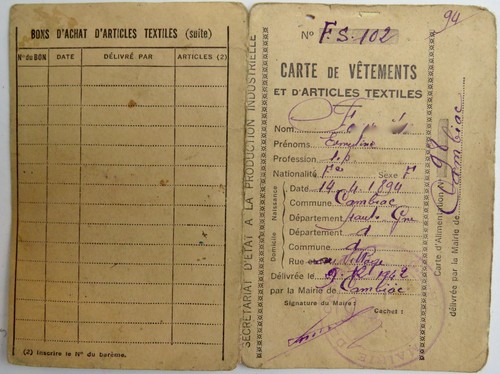 BONS D'ACHAT D'ARTICLES TEXTILES (suite)
N° du BON DATE DÉLIVRÉ PAR ARTICLES (2)
(2) Inscrire le N° du barème.
SECRÉTARIAT D'ÉTAT A LA PRODUCTION INDUSTRIELLE
94
N° F.S. 102
CARTE DE VÊTEMENTS
ET D'ARTICLES TEXTILES
Nom
Prénoms
Profession S.P.
Nationalité Fse Sexe F
Naissance
Date 14.4.1894
Commune Cambiac
Département Haute Gne
Domicile
Département d
Commune d
Rue Village
Délivrée le 1942
par la Mairie de Cambiac
Signature du Maire : Cachet :
MAIRIE
Carte d'Alimentation N° 98
délivrée par la Mairie de Cambiac